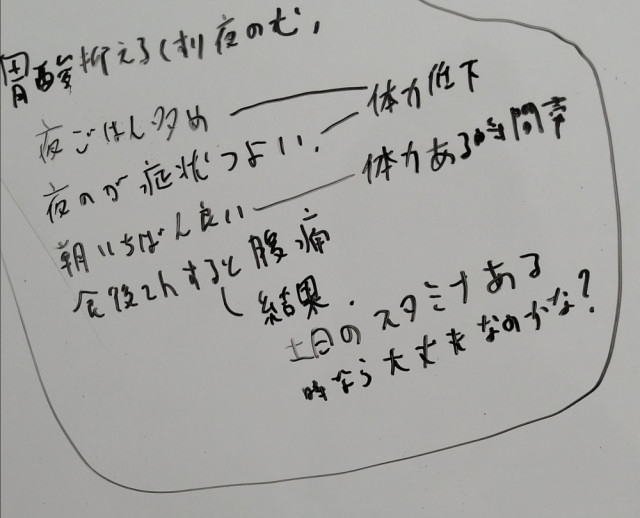 胃酸抑えるくすり夜のむ,
夜ごはん多め 体力低下
夜のが症状つよい、
朝いちばん良い 体力ある時間帯
食後2hすると腹痛
し 結果、
土日のスタミナある
時なら大丈夫なのかな?